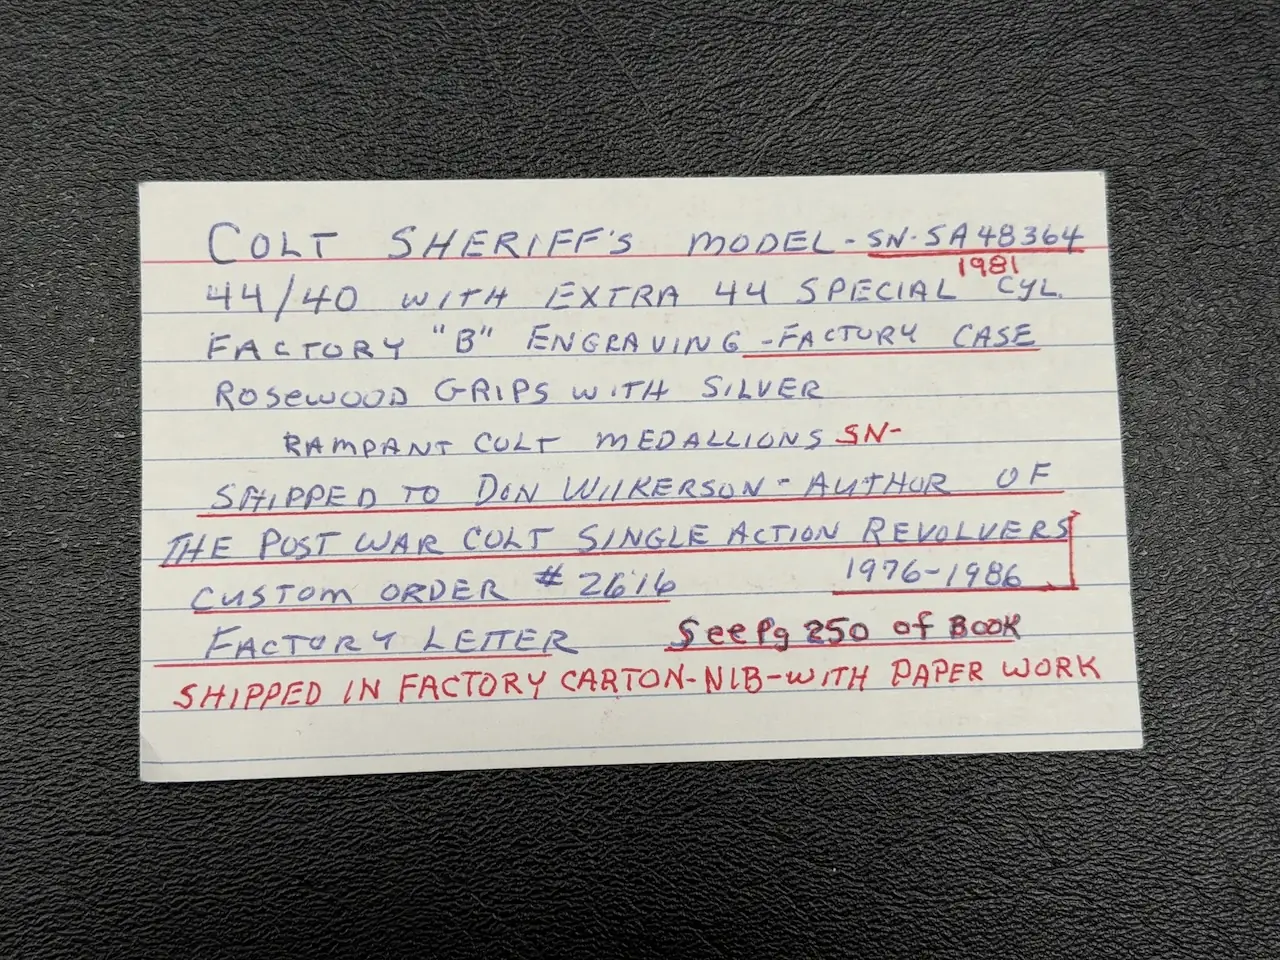 COLT SHERIFF'S MODEL - SN. SA48364
1981
44/40 WITH EXTRA 44 SPECIAL CYL.
FACTORY "B" ENGRAVING - FACTORY CASE
ROSEWOOD GRIPS WITH SILVER
RAMPANT COLT MEDALLIONS SN-
SHIPPED TO DON WILKERSON - AUTHOR OF
THE POST WAR COLT SINGLE ACTION REVOLVERS
1976-1986
CUSTOM ORDER # 2616
FACTORY LETTER See Pg 250 of BOOK
SHIPPED IN FACTORY CARTON-NIB-WITH PAPER WORK